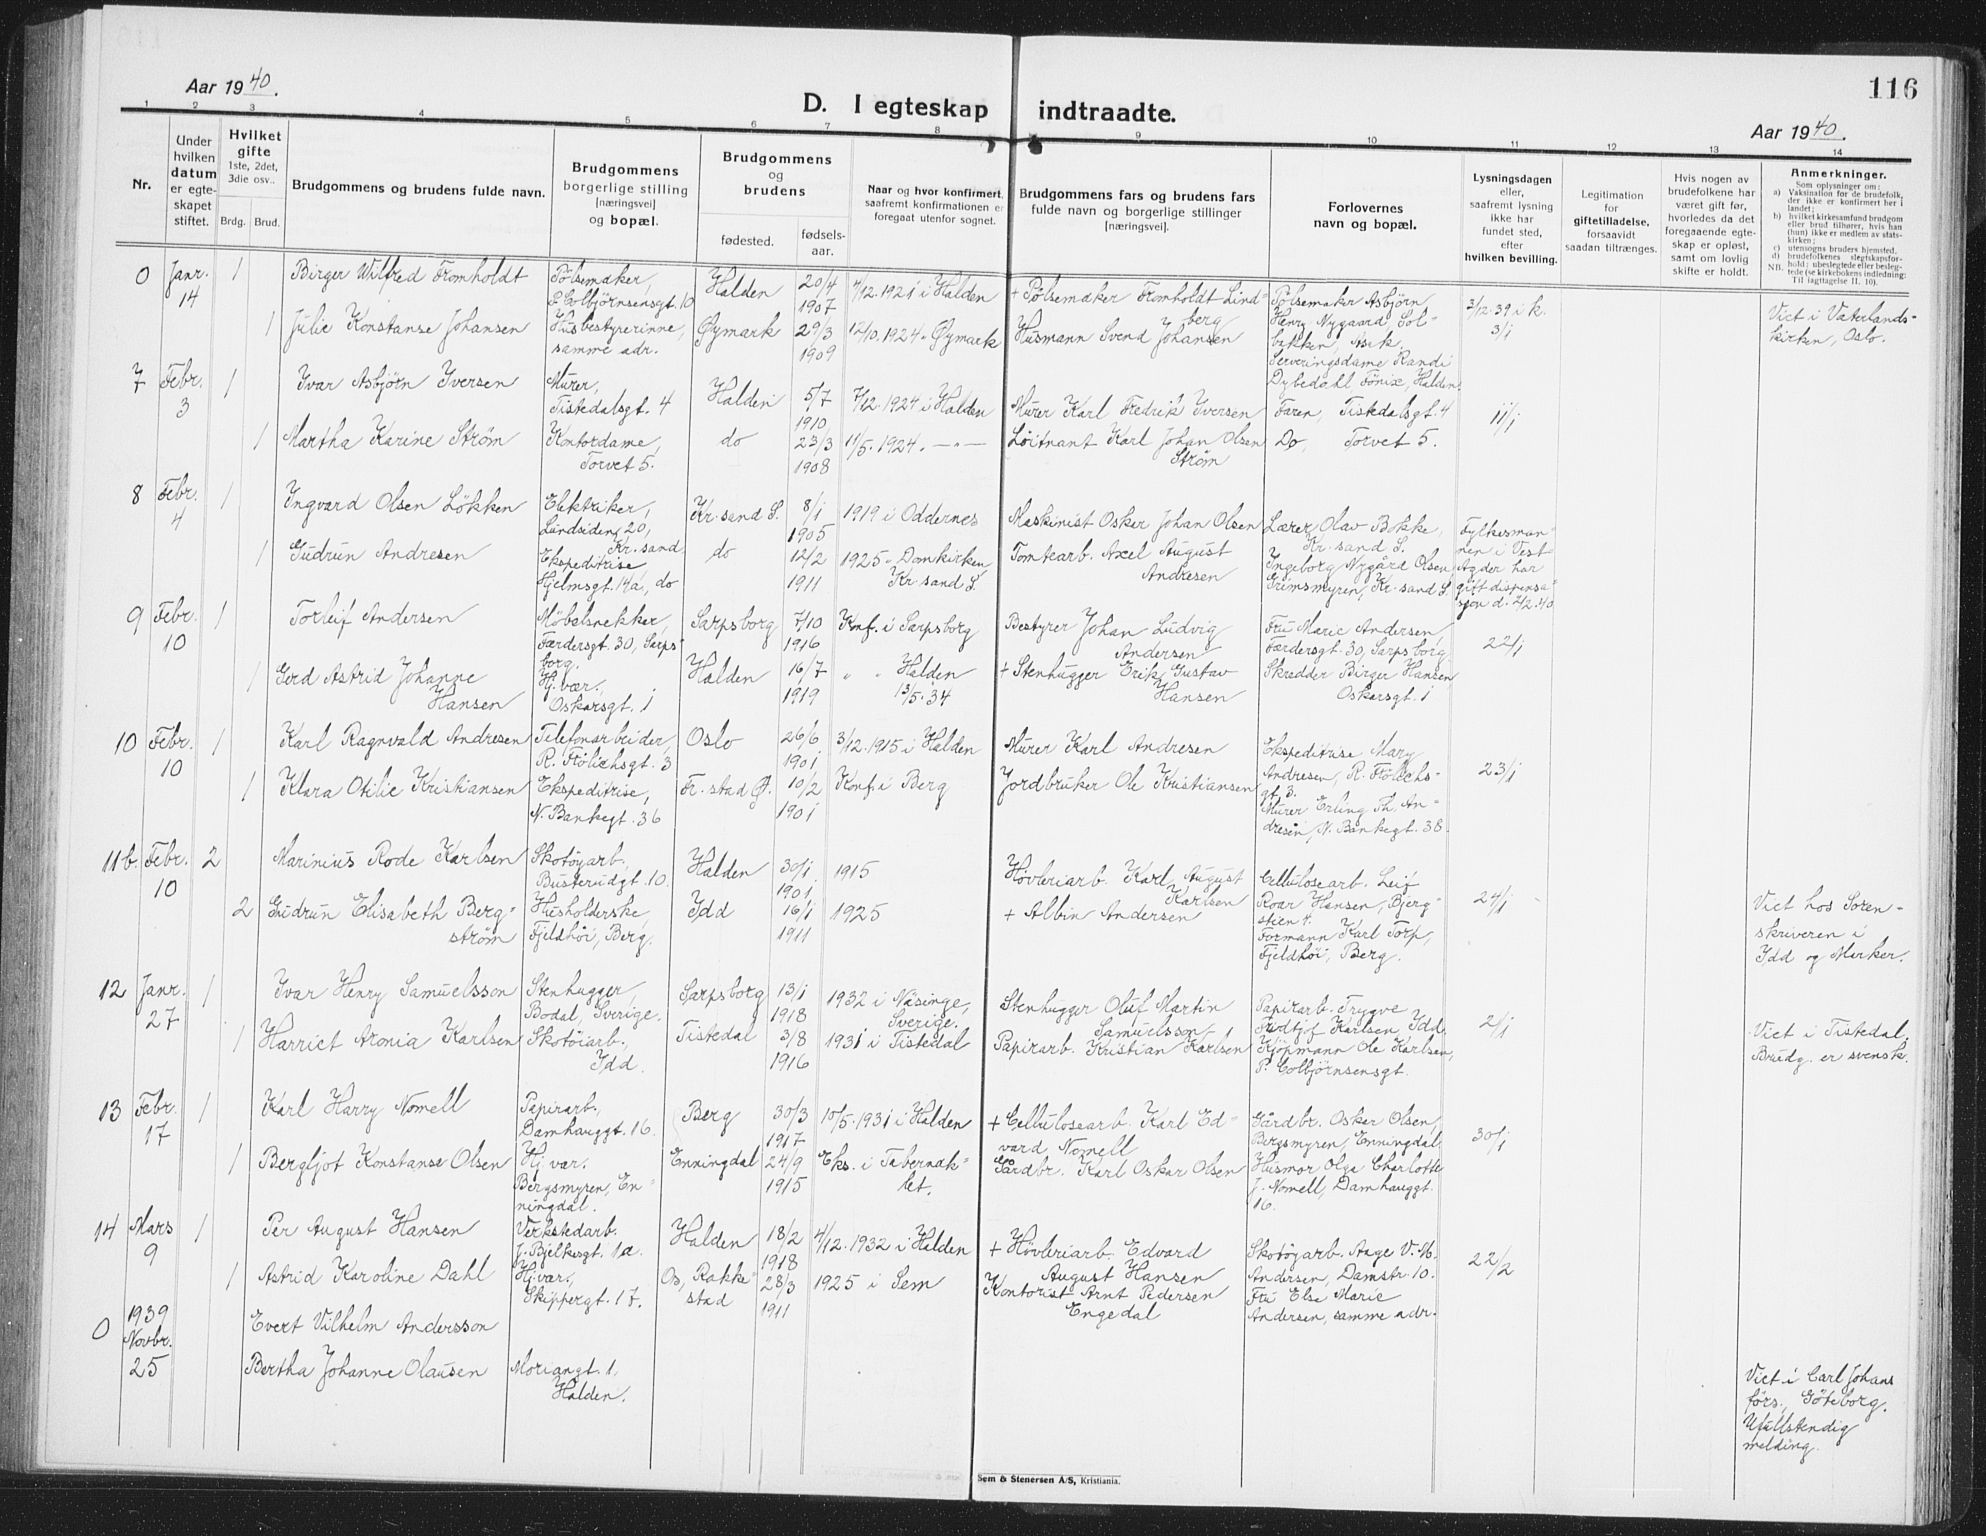 116
Aar 1940.
D. I egteskap indtraadte.
Aar 1940.
1 2 3 4 5 6 7 8 9 10 11 12 13 14
Nr.
Under
hvilken
datum
er egte-
skapet
stiftet.
Hvilket
gifte
1ste, 2det,
3die osv..
Brdg. Brud.
Brudgommens og brudens fulde navn.
Brudgommens
borgerlige stilling
[næringsvei]
og bopæl.
Brudgommens
og
brudens
fødested.
fødsels-
aar.
Naar og hvor konfirmert,
saafremt konfirmationen er
foregaat utenfor sognet.
Brudgommens fars og brudens fars
fulde navn og borgerlige stillinger
[næringsvei].
Forlovernes
navn og bopæl.
Lysningsdagen
eller,
saafremt lysning
ikke har
fundet sted,
efter
hvilken bevilling.
Legitimation
for
giftetilladelse,
forsaavidt
saadan tiltrænges.
Hvis nogen av
brudefolkene har
været gift før,
hvorledes da det
foregaaende egte-
skap er opløst,
samt om lovlig
skifte er holdt.
Anmerkninger.
Som oplysninger om:
a) Vaksination for de brudefolk,
der ikke er konfirmert her i
landet;
b) hvilket kirkesamfund brudgom
eller brud tilhører, hvis han
(hun) ikke er medlem av stats-
kirken;
c) utensogns bruders hjemsted.
d) brudefolkenes slegtskapsfor-
hold: ubeslegtede eller besleg-
NB. tede (se kirkebokens indledning:
Til iagttagelse II. 10).
0
Janr.
14
1
Birger Wilfred Fromholdt
Pölsemaker,
P. Colbjörnsensgt. 10
Halden
20/4
1907
4/12. 1921 i Halden
+ Pölsemaker Fromholdt Lind=
berg
Pölsemaker Asbjörn
Henry Nygaard, Sol-
bakken, Ask.
3/12. 39 i k.
3/1
Viet i Vaterlands-
kirken, Oslo.
1
Julie Konstanse Johansen
Husbestyrerinne,
samme adr.
Øymark
29/3
1909
12/10. 1924 " Øymark
Husmann Svend Johansen
Serveringsdame Randi
Dybedahl Fönix, Halden.
7
Febr.
3
1
Ivar Asbjørn Iversen
Murer,
Tistedalsgt. 4
Halden
5/7
1910
7/12. 1924 i Halden
Murer Karl Fredrik Iversen
Faren, Tistedalsgt. 4
11/1
1
Martha Karine Strøm
Kontordame,
Torvet 5.
do
23/3
1908
11/5. 1924. — " —
Löitnant Karl Johan Olsen
Strøm
Do, Torvet 5.
8
Febr.
4
1
Ingvard Olsen Lökken
Elektriker,
Lundsiden 20,
Kr.sand
Kr.sand S.
8/1
1905
1919 i Oddernes
Maskinist Oskar Johan Olsen
Lærer Olav Bokke,
Kr. sand S.
Fylkesman-
nen i Vest
Agder har
gitt dispensa-
sjon d. 2/2. 40
1
Gudrun Andresen
Ekspeditrise
Hjelmsgt. 14a, do
do
12/2
1911
1925 " Domkirken
Kr. sand S.
Tomtearb. Axel August
Andresen
Ingeborg Nygård Olsen
Grimsmyren, Kr. sand S.
9
Febr.
10
1
Torleif Andersen
Møbelsnekker,
Færdersgt. 30, Sarps-
borg.
Sarpsborg
7/10
1916
Konf. i Sarpsborg
Bestyrer Johan Ludvig
Andersen
Fru Marie Andersen,
Færdersgt. 30, Sarpsborg.
22/1
1
Gerd Astrid Johanne
Hansen
Hj. vær.,
Oskarsgt. 1
Halden
16/7
1919
" " Halden
13/5. 34
+ Stenhugger Erik Gustav
Hansen
Skredder Birger Hansen
Oskarsgt. 1
10
Febr.
10
1
Karl Ragnvald Andresen
Telefonarbeider,
R. Frölichsgt. 3
Oslo
26/6
1901
3/12. 1915 i Halden
Murer Karl Andresen
Ekspeditrise Mary
Andresen, R. Frölichs-
gt. 3.
23/1
1
Klara Otilie Kristiansen
Ekspeditrise,
N. Bankegt. 36
Fr. stad Ø.
10/2
1901
Konf. i Berg
Jordbruker Ole Kristiansen
Murer Erling Th. An-
dresen, N. Bankegt. 38.
11b.
Febr.
10
2
Marinius Rode Karlsen
Skotöyarb.,
Busterudgt. 10.
Halden
30/1
1901
1915
Hövleriarb. Karl August
Karlsen
Cellulosearb. Leif
Roar Hansen, Bjerg-
stien 4.
24/1
Viet hos Soren-
skriveren i
Idd og Marker.
2
Gudrun Elisabeth Berg-
strøm
Husholderske,
Fjeldhöi, Berg.
Idd
16/1
1911
1925
+ Albin Andersen
Formann Karl Torp,
Fjeldhöi, Berg.
12
Janr.
27
1
Ivar Henry Samuelsson
Stenhugger,
Bodal, Sverige.
Sarpsborg
13/1
1918
1932 i Näsinge,
Sverige.
Stenhugger Oluf Martin
Samuelsson
Papirarb. Trygve
Fridtjof Karlsen, Idd.
2/1
Viet i Tistedal.
Brudg. er svensk.
1
Harriet Aronia Karlsen
Skotöiarb.
Idd.
Tistedal
3/8
1916
1931 i Tistedal
Papirarb. Kristian Karlsen
Kjöpmann Ole Karlsen,
P. Colbjörnsensgt.
13
Febr.
17
1
Karl Harry Nomell
Papirarb.,
Damhauggt. 16.
Berg
30/3
1917
10/5. 1931 i Halden
+ Cellulosearb. Karl Ed-
vard Nomell
Gårdbr. Oskar Olsen,
Bergsmyren, Enningdal
30/1
1
Bergljot Konstanse Olsen
Hj. vær.
Bergsmyren, En-
ningdal.
Enningdal
24/9
1915
Eks. i Tabernak-
let.
Gårdbr. Karl Oskar Olsen
Husmor Olga Charlotte
J. Nomell, Damhauggt.
16.
14
Mars
9
1
Per August Hansen
Verkstedarb.
J. Bjelkesgt. 1a.
Halden
18/2
1918
4/12. 1932 i Halden
+ Hövleriarb. Edvard
August Hansen
Skotöyarb. Aage V. M.
Andersen, Damstr. 10.
22/2
1
Astrid Karoline Dahl
Hj. vær.,
Skippergt. 17.
Os, Rakke-
stad
28/3
1911
1925 i Sem
Kontorist Arnt Pedersen
Engedal
Fru Else Marie
Andersen, samme adr.
0
1939
Novbr.
25
Evert Vilhelm Andersson
Bertha Johanne Olausen
Moriangt. 1.
Halden.
Viet i Carl Johans
förs., Göteborg.
Ufullstendig
melding.
Sem & Stenersen A/S, Kristiania.